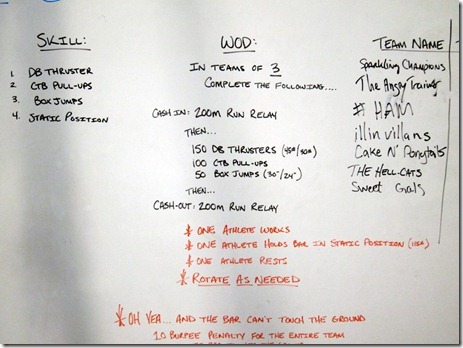 SKILL:
1. DB THRUSTER
2. CTB PULL-UPS
3. BOX JUMPS
4. STATIC POSITION
WOD:
IN TEAMS OF 3
COMPLETE THE FOLLOWING....
CASH IN: 200M RUN RELAY
THEN...
150 DB THRUSTERS (45#/30#)
100 CTB PULL-UPS
50 BOX JUMPS (30"/24")
THEN...
CASH-OUT: 200M RUN RELAY
* ONE ATHLETE WORKS
* ONE ATHLETE HOLDS BAR IN STATIC POSITION
* ONE ATHLETE RESTS
* ROTATE AS NEEDED
* OH YEA... AND THE BAR CAN'T TOUCH THE GROUND
10 BURPEE PENALTY FOR THE ENTIRE TEAM
TEAM NAME
Sparkling Champions
The Angry Trainers
# HAM
illin villans
Cake N' Ponytails
THE HELL-CATS
Sweet Gals